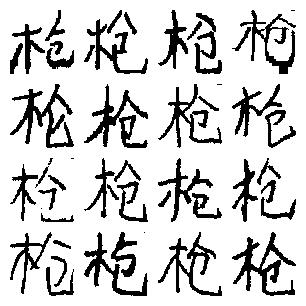 枪枪枪枪
枪枪枪枪
枪枪枪枪
枪枪枪枪